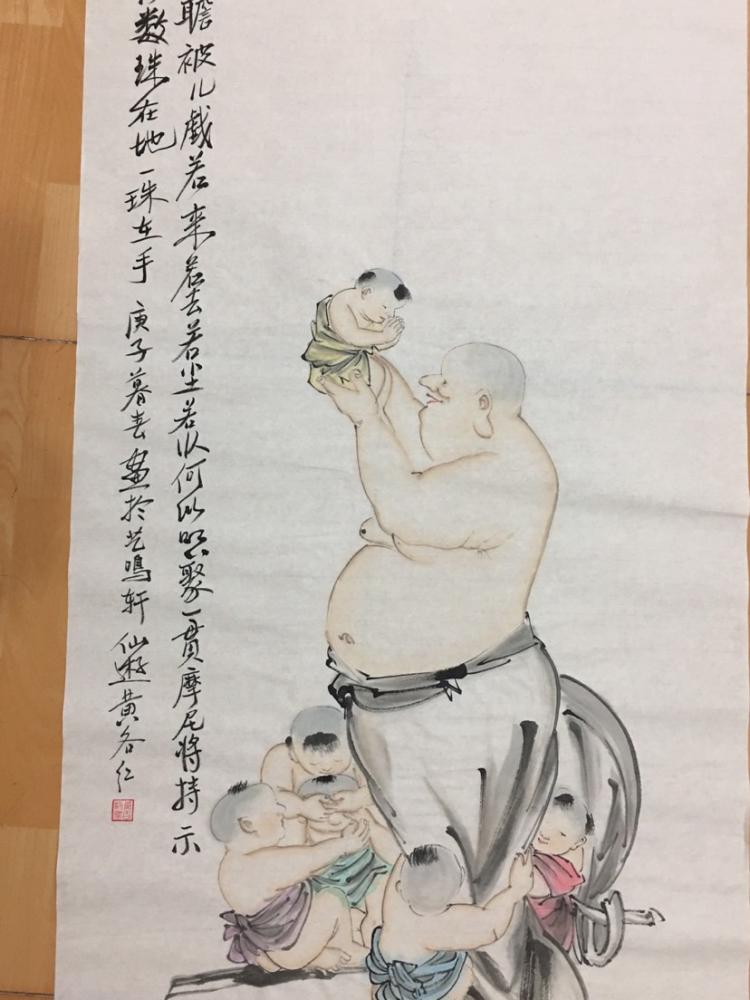 瞻被儿戲若来若去若坐若以何以聚一貫摩尼將持示
数珠在地一珠在手 庚子暮春畫於艺鳴轩 仙遊黄各仁